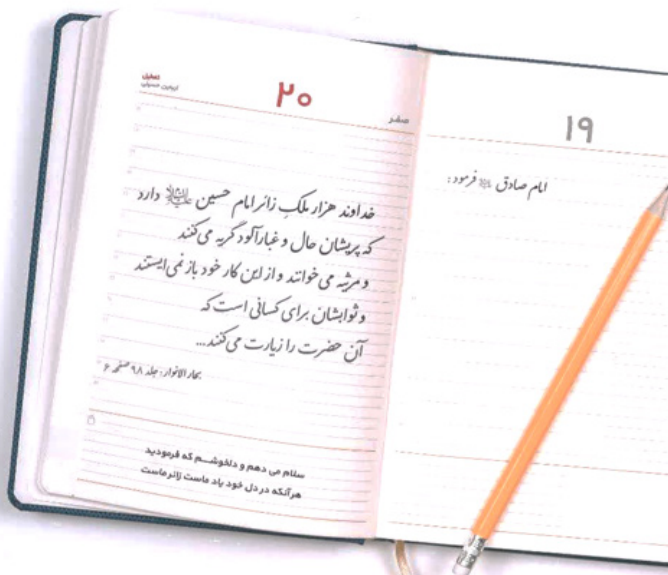 ۱۹
امام صادق علیه‌السلام فرمود:
تعطیل
اربعین حسینی
۲۰
صفر
خداوند هزار ملک زائر امام حسین علیه‌السلام دارد
که پریشان حال و غبارآلود گریه می‌کنند
و مرثیه می‌خوانند و از این کار خود باز نمی‌ایستند
و ثوابشان برای کسانی است که
آن حضرت را زیارت می‌کنند...
بحارالانوار، جلد ۹۸ صفحه ۶
سلام می دهم و دلخوشم که فرمودید
هرآنکه در دل خود یاد ماست زائر ماست